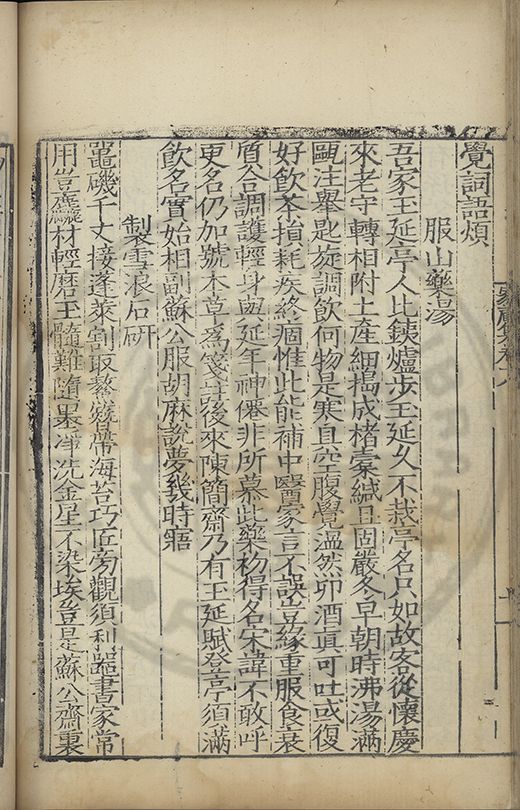 覺詞語煩
服山藥湯
吾家玉延亭人比鋏爐步玉延久不栽亭名只如故客從懷慶
來老守轉相附土產細搗成楮囊緘且固嚴冬早朝時沸湯滿
甌注舉匙旋調飲何物是寒具空腹覺溫然卯酒真可吐或復
好飲茶損耗疾終痼惟此能補中醫家言不誤豈緣重服食衰
質合調護輕身與延年神僊非所慕此藥初得名宋諱不敢呼
更名仍加號本草爲箋註後來陳簡齋乃有玉延賦登亭須滿
飲名實始相副蘇公服胡麻說夢幾時寤
製雪浪石研
黿磯千丈接蓬萊割取鰲簪帶海苔巧匠旁觀須利器書家常
用豈麤材輕磨玉髓難隨墨凈洗金星不染埃豈是蘇公齋裏
家藏集卷十八